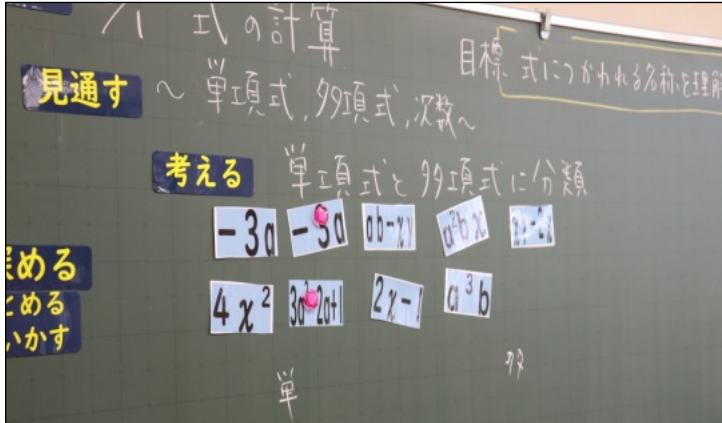 式の計算
目標 式につかわれる名称を理解
見通す ～単項式,多項式,次数～
考える 単項式と多項式に分類
-3a ab-xy a²bx
める
4x² 2x-1 a³b
とめる
いかす
単 多